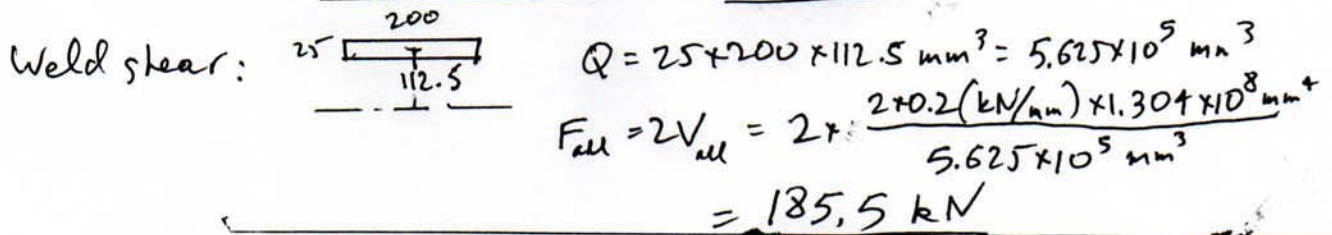 200
Weld shear: 25 112.5 Q = 25×200×112.5 mm³ = 5.625×10⁵ mm³
F_all = 2V_all = 2× 2×0.2(kN/mm)×1.304×10⁸ mm⁴
5.625×10⁵ mm³
= 185.5 kN